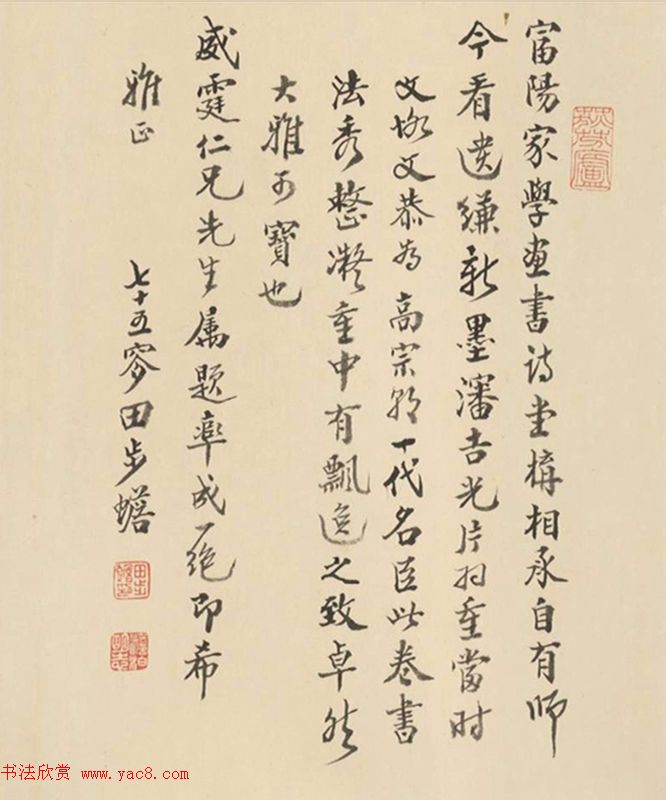 富陽家學畫書詩堂構相承自有師
今看遺縑新墨瀋吉光片羽重當時
文恪文恭為高宗朝一代名臣此卷書
法秀整凝重中有飄逸之致卓然
大雅可寶也
威霆仁兄先生属題率成一绝即希
雅正
七十五叟田步蟾
书法欣赏 www.yac8.com